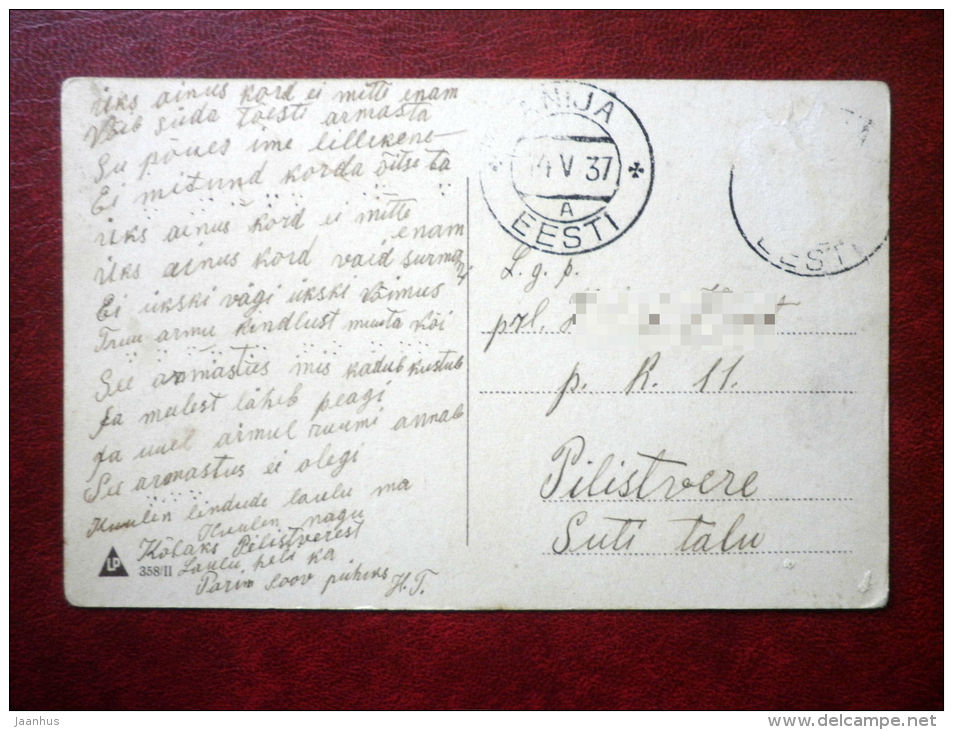 Üks ainus kord ei mitte enam
Võib süda tõesti armasta
Su põues ime lillikene
Ei mitund korda õitse ta
Üks ainus kord ei mitte
enam
Üks ainus kord vaid surma
Ei ükski vägi ükski võimus
Truu armu kindlust muuta või
See armastus mis kadub kustub
Ja meelest läheb peagi
Ja uuel armul ruumi annab
See armastus ei olegi
Kuulen lindude laulu ma
Kuulen nagu
Kõlaks Pilistverest
Laulu heli ka
Parim soov pühiks H.T.
LP
358/II
NIJA
14 V 37
A
EESTI
EESTI
L. g. p.
prl.
p. k. 11.
Pilistvere
Suti talu
Jaanhus
www.delcampe.net